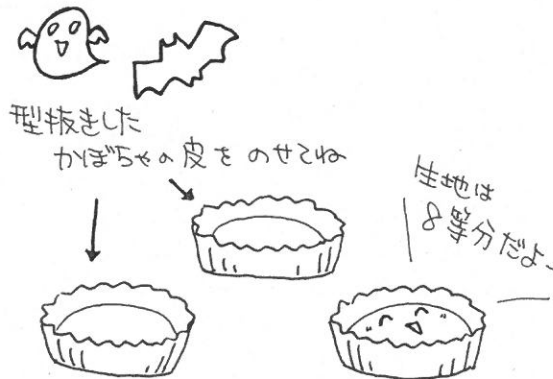 型抜きした
かぼちゃの皮をのせてね
生地は
8等分だよー